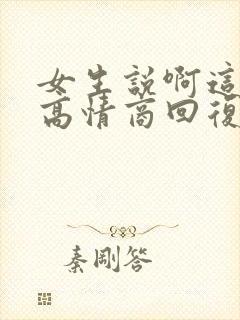 女生説啊這
高情商回復
秦剛答